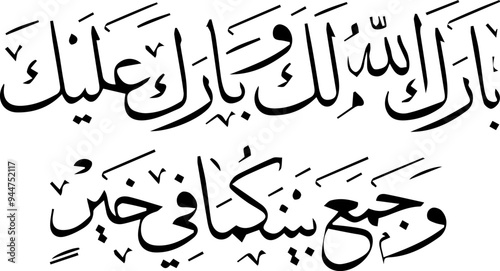 بارك الله لك وبارك عليك
وجمع بينكما في خيرٍ
Adobe Stock | #944752117